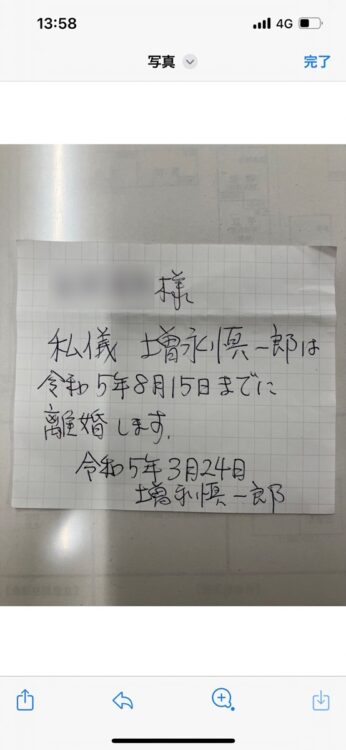 13:58
4G
写真
完了
様
私儀 増永慎一郎は
令和5年8月15日までに
離婚します.
令和5年3月24日
増永慎一郎